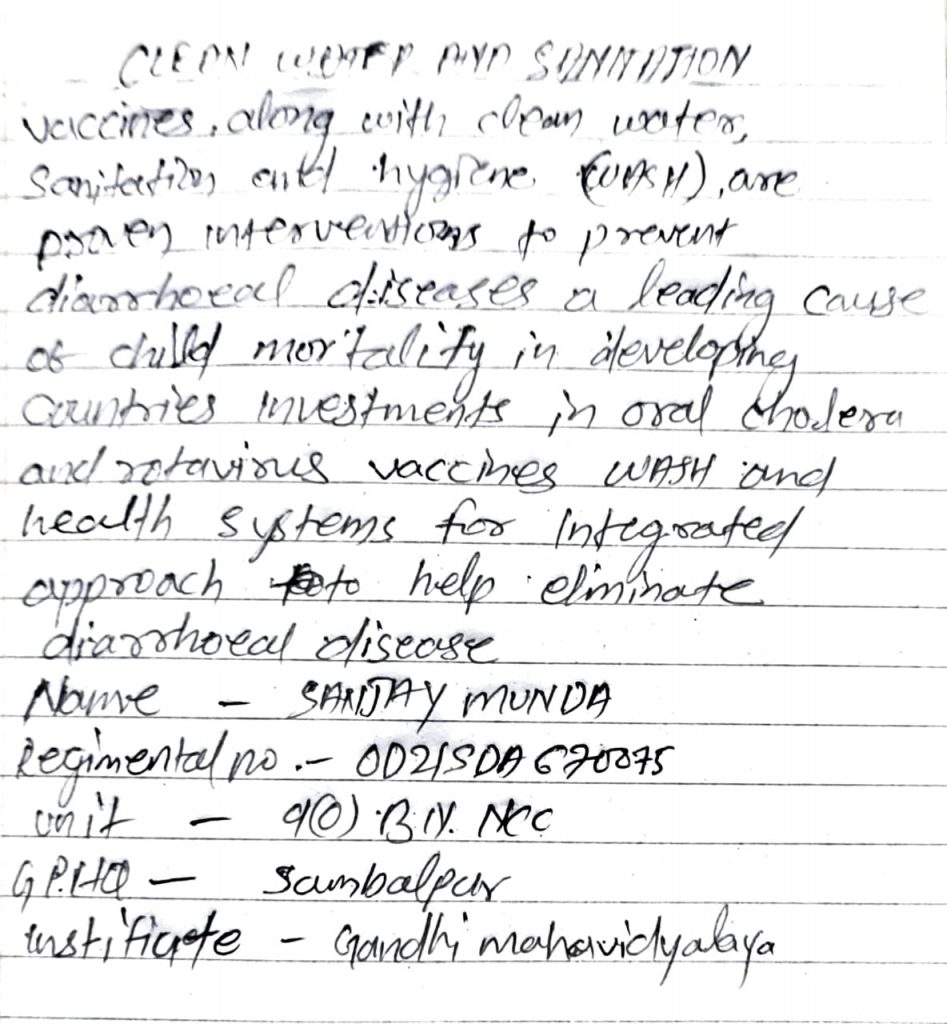 CLEAN WATER AND SANITATION
vaccines, along with clean water,
Sanitation and hygiene (WASH), are
proven interventions to prevent
diarrhoeal diseases a leading cause
of child mortality in developing
Countries investments in oral cholera
and rotavirus vaccines WASH and
health systems for Integrated
approach to help eliminate
diarrhoeal disease
Name - SANJAY MUNDA
Regimental no. - OD21SDA670075
unit - 9(O) BN. NCC
GP.HQ - Sambalpur
institute - Gandhi mahavidyalaya